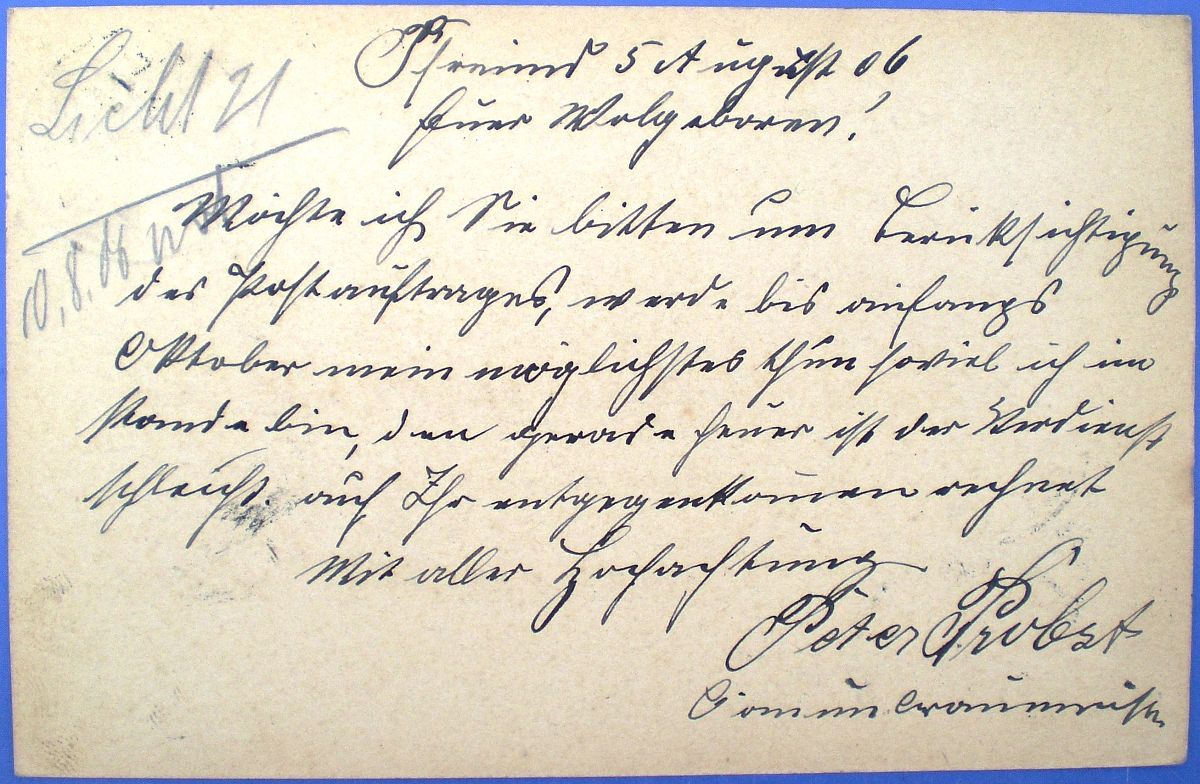 Licht 21
10.8.06
Pfreimd 5 August 06
Euer Wolgeboren!
Möchte ich Sie bitten um Berüksichtigung
des Postauftrages, werde bis anfangs
Oktober mein möglichstes thun soviel ich im
stande bin, den gerade heuer ist der Verdienst
schlecht. auf Ihr entgegenkomen rechnet
Mit aller Hochachtung
Peter Probst
Comunbraumeister